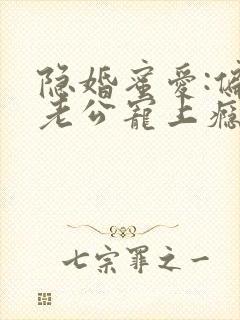 隐婚蜜爱:偏
老公宠上瘾
七宗罪之一